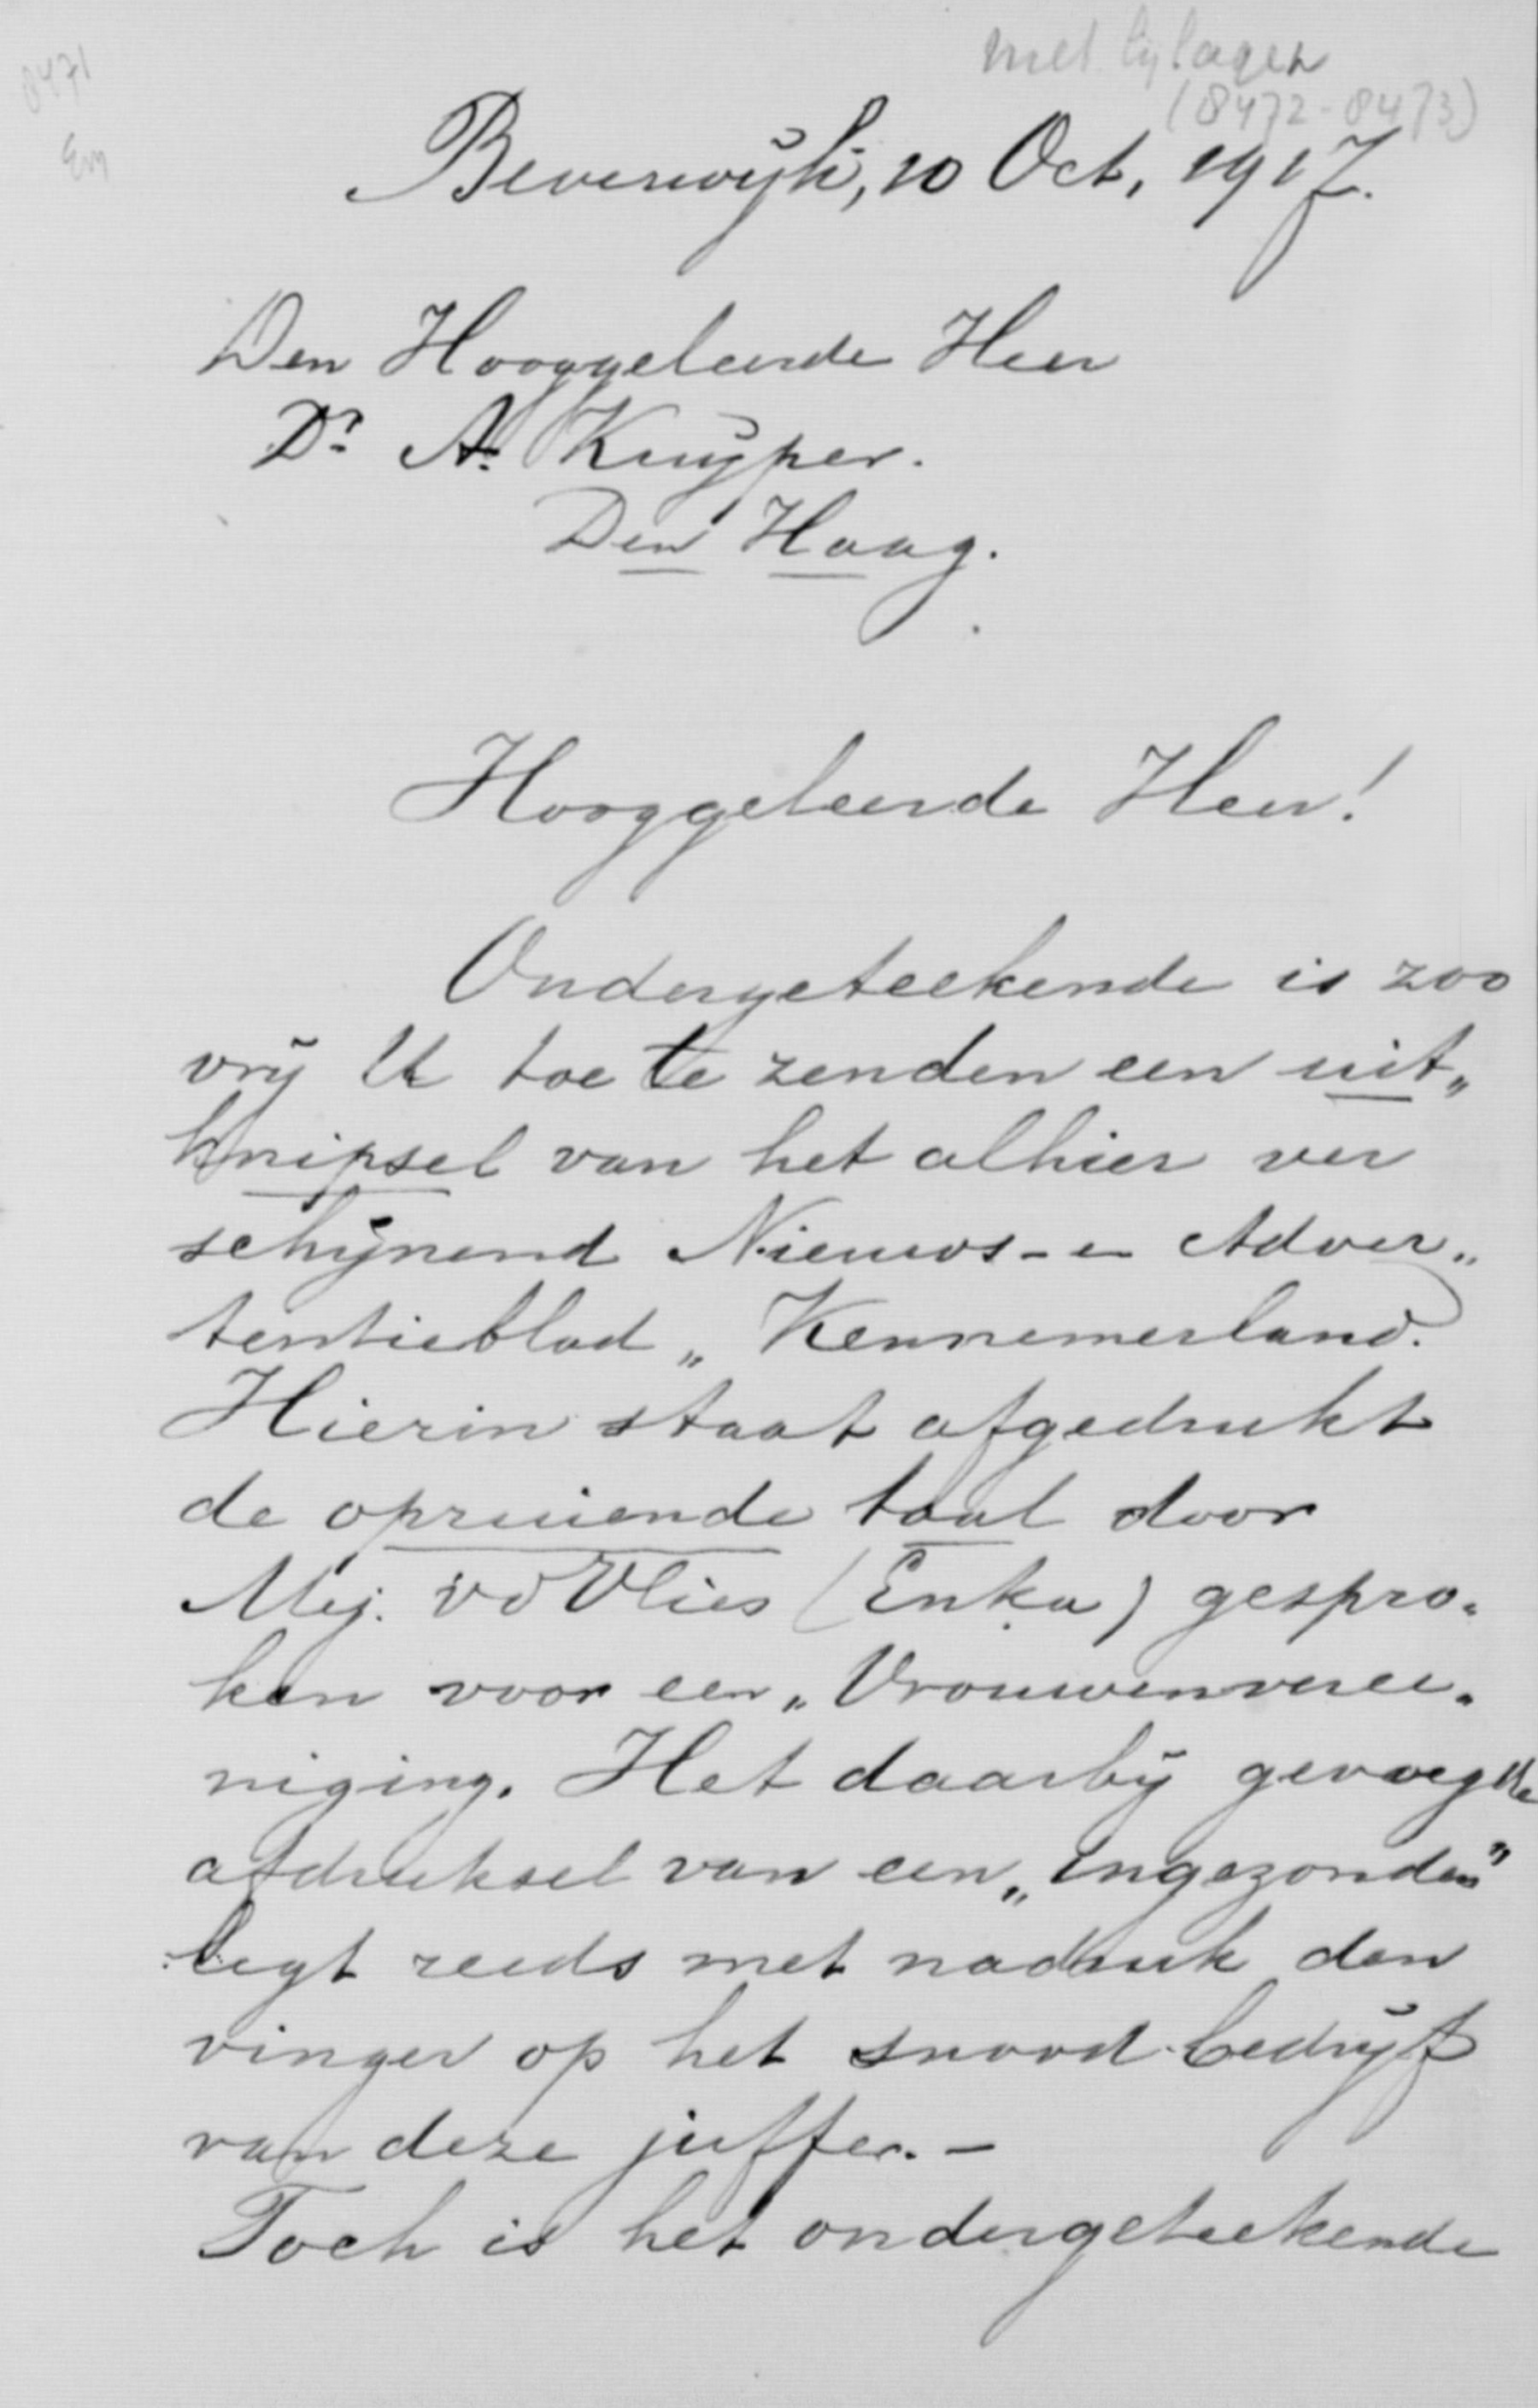 8471
Em
met bylagen
(8472-8473)
Beverwijk, 10 Oct. 1917.
Den Hooggeleerde Heer
Dr. A. Kuyper.
Den Haag.
Hooggeleerde Heer!
Ondergeteekende is zoo
vrij U toe te zenden een uit„
knipsel van het alhier ver
schijnend Nieuws- en Adver„
tentieblad „Kennemerland.
Hierin staat afgedrukt
de opruiende taal door
Mej. vd Vlies (Enka) gespro„
ken voor een „Vrouwenveree„
niging. Het daarbij gevoegde
afdruksel van een „ingezonden"
legt reeds met nadruk den
vinger op het snood bedrijf
van deze juffer. —
Toch is het ondergeteekende